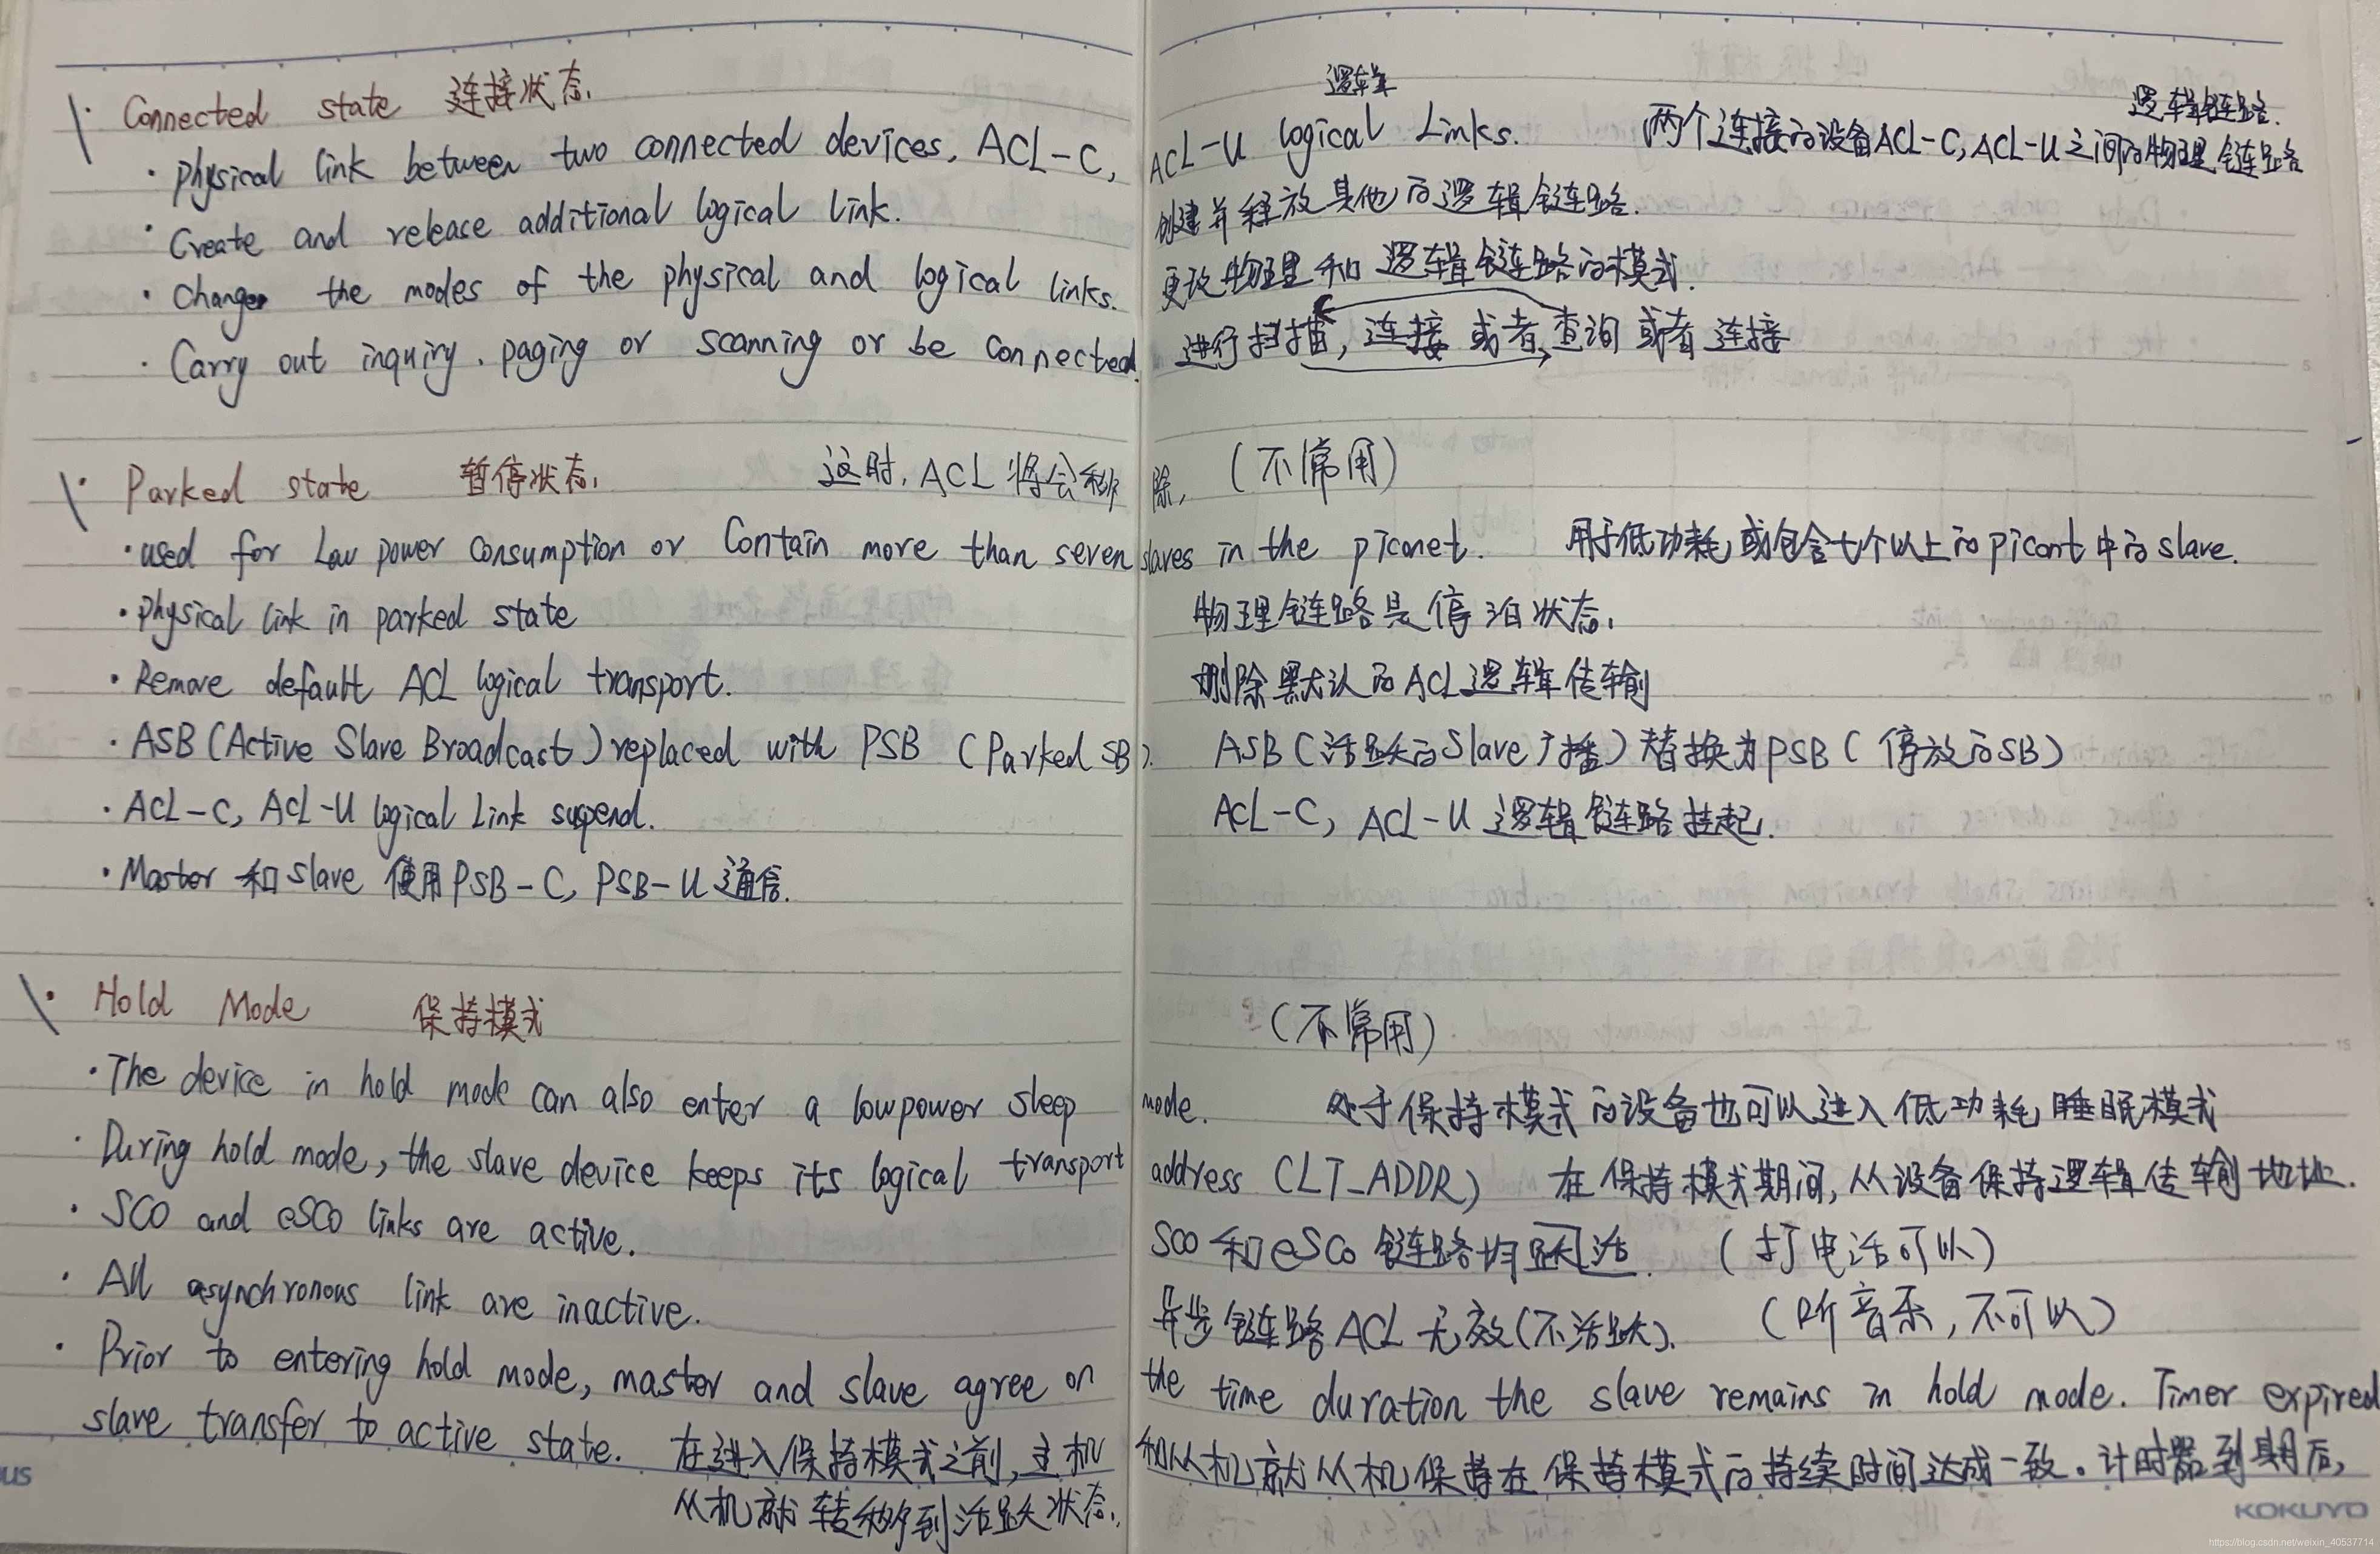 Connected state 连接状态.
逻辑
· physical link between two connected devices, ACL-C, ACL-U logical Links. 两个连接的设备ACL-C, ACL-U之间的物理链路
逻辑链路.
· Create and release additional logical link. 创建并释放其他的逻辑链路.
· Change the modes of the physical and logical links. 更改物理和逻辑链路的模式.
· Carry out inquiry. paging or scanning or be connected. 进行扫描, 连接或者查询或者连接
· Parked state 暂停状态. 这时, ACL将会移除, (不常用)
· used for Low power consumption or Contain more than seven slaves in the piconet. 用于低功耗或包含七个以上的picont中的slave.
· physical link in parked state 物理链路是停泊状态.
· Remove default ACL logical transport. 删除默认的ACL逻辑传输
· ASB (Active Slave Broadcast) replaced with PSB (Parked SB). ASB (活跃的Slave广播) 替换为PSB (停放的SB)
· ACL-C, ACL-U logical Link suspend. ACL-C, ACL-U逻辑链路挂起.
· Master 和 slave 使用PSB-C, PSB-U通信.
· Hold Mode 保持模式 (不常用)
· The device in hold mode can also enter a lowpower sleep mode. 处于保持模式的设备也可以进入低功耗睡眠模式
· During hold mode, the slave device keeps its logical transport address (LT_ADDR) 在保持模式期间, 从设备保持逻辑传输地址.
· SCO and eSCO links are active. SCO和eSCO链路均跃活. (打电话可以)
· All asynchronous link are inactive. 异步链路ACL无效(不活跃). (听音乐, 不可以)
· Prior to entering hold mode, master and slave agree on the time duration the slave remains in hold mode. Timer expired
slave transfer to active state. 在进入保持模式之前, 主机和从机就从机保持在保持模式的持续时间达成一致。计时器到期后,
从机就转移到活跃状态.
KOKUYO
https://blog.csdn.net/weixin_40537714